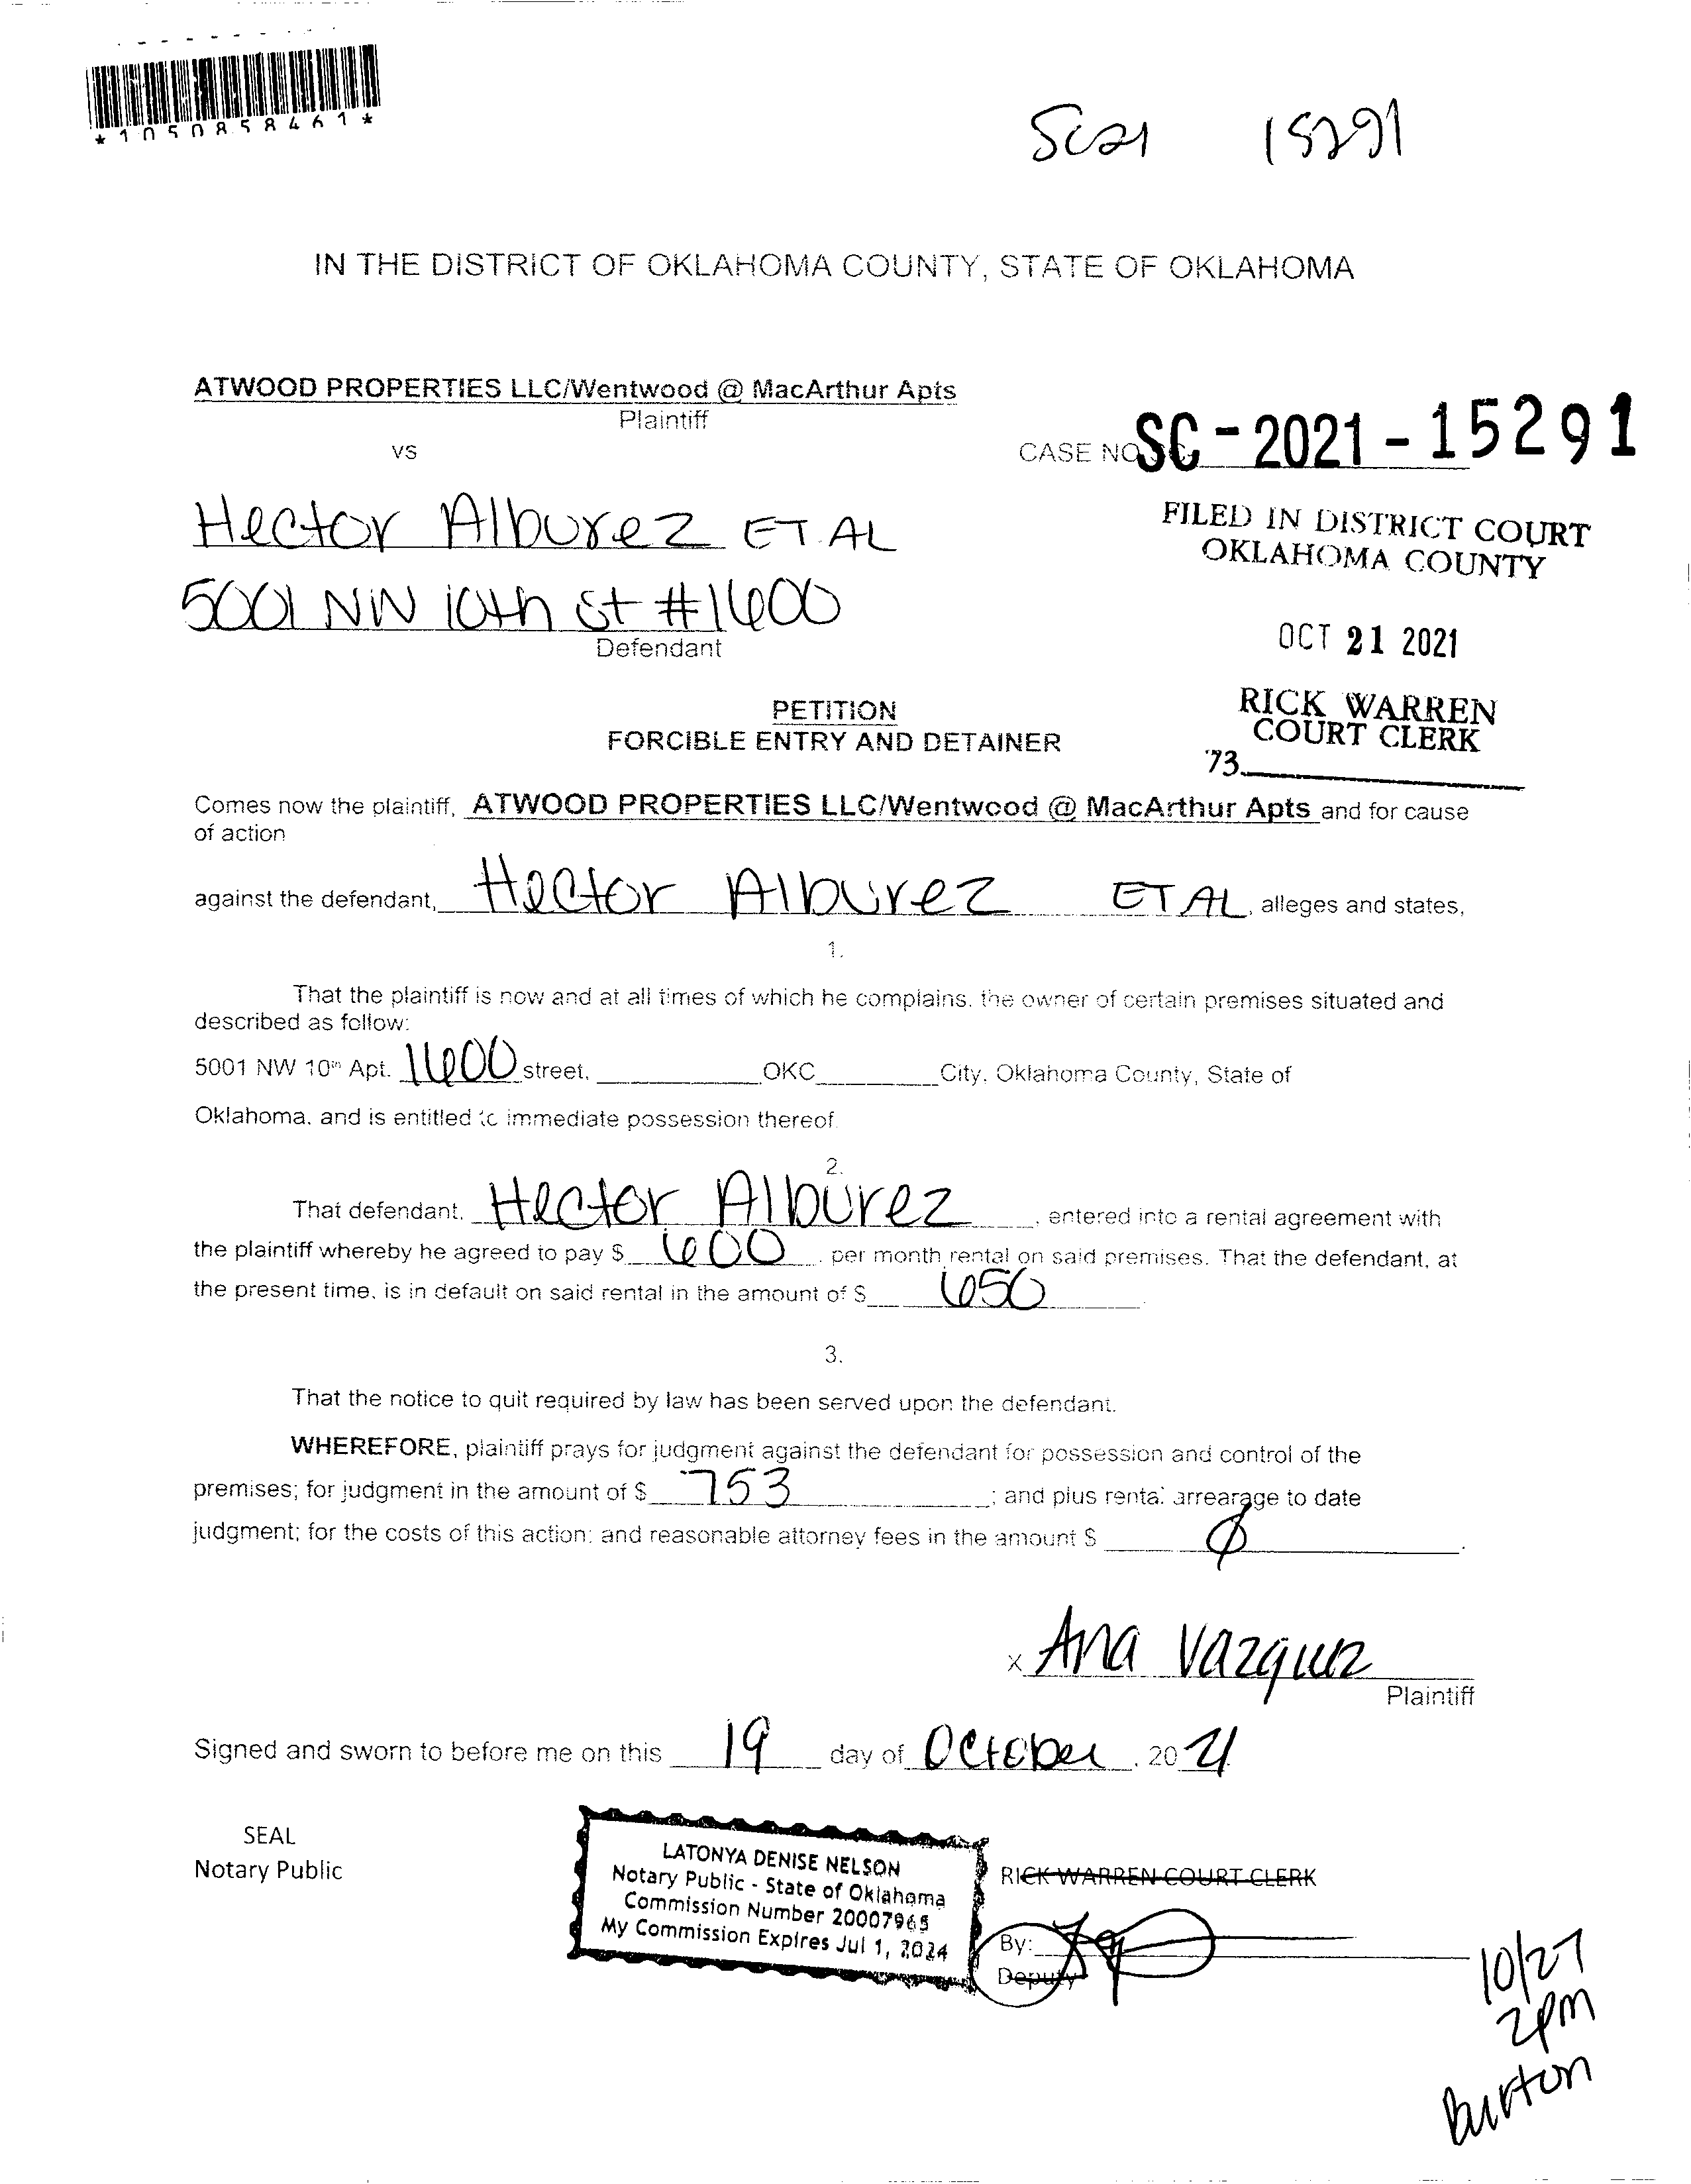 *1050858461*
SC21 15291
IN THE DISTRICT OF OKLAHOMA COUNTY, STATE OF OKLAHOMA
ATWOOD PROPERTIES LLC/Wentwood @ MacArthur Apts
Plaintiff
vs
CASE NO SC-2021-15291
Hector Alburez ET. AL
5001 NW 10th St #1600
Defendant
FILED IN DISTRICT COURT
OKLAHOMA COUNTY
OCT 21 2021
RICK WARREN
COURT CLERK
73
PETITION
FORCIBLE ENTRY AND DETAINER
Comes now the plaintiff, ATWOOD PROPERTIES LLC/Wentwood @ MacArthur Apts and for cause
of action
against the defendant, Hector Alburez ET AL, alleges and states,
1.
That the plaintiff is now and at all times of which he complains, the owner of certain premises situated and
described as follow:
5001 NW 10th Apt. 1600 street, OKC City, Oklahoma County, State of
Oklahoma, and is entitled to immediate possession thereof.
2.
That defendant, Hector Alburez, entered into a rental agreement with
the plaintiff whereby he agreed to pay $ 600, per month rental on said premises. That the defendant, at
the present time, is in default on said rental in the amount of $ 650
3.
That the notice to quit required by law has been served upon the defendant.
WHEREFORE, plaintiff prays for judgment against the defendant for possession and control of the
premises; for judgment in the amount of $ 753; and plus rental arrearage to date
judgment; for the costs of this action; and reasonable attorney fees in the amount $ Ø.
x Ana Vazquez
Plaintiff
Signed and sworn to before me on this 19 day of October, 2021
SEAL
Notary Public
LATONYA DENISE NELSON
Notary Public - State of Oklahoma
Commission Number 20007965
My Commission Expires Jul 1, 2024
RICK WARREN COURT CLERK
By:
Deputy
10/27
2pm
Burton